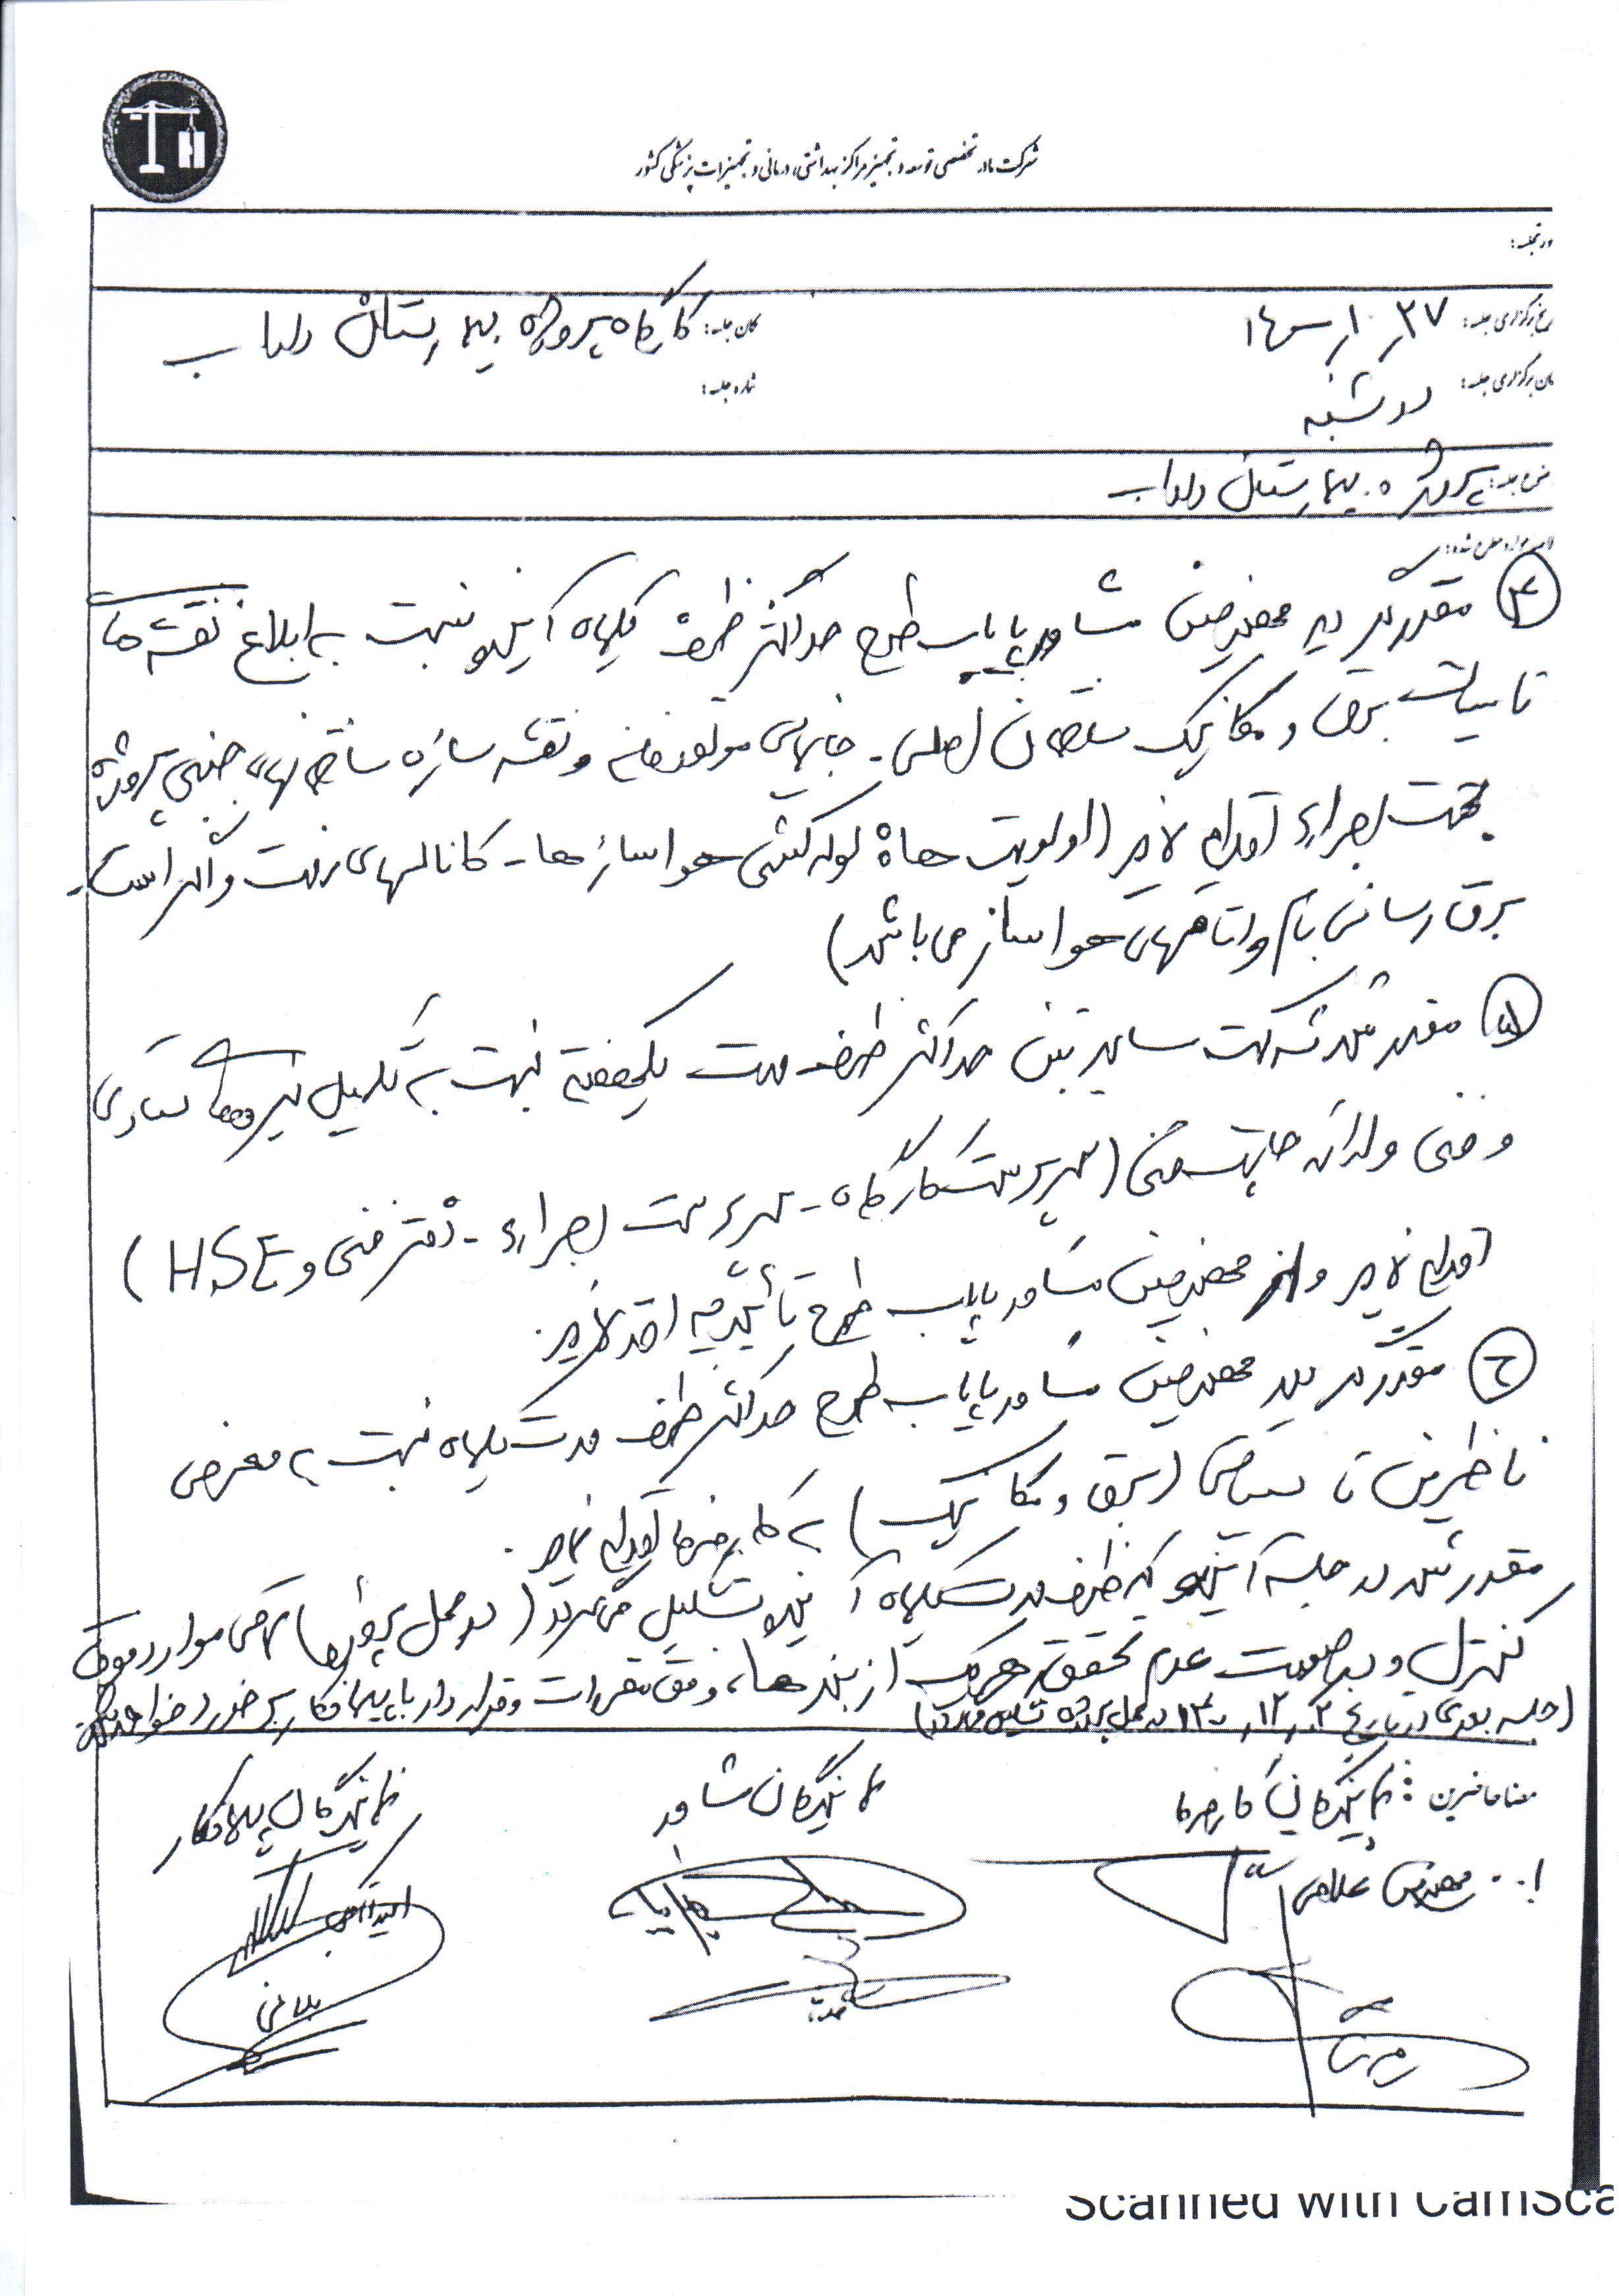 شرکت مادر تخصصی توسعه و تجهیز مراکز بهداشتی، درمانی و تجهیزات پزشکی کشور
ورتجلسه:
ریخ برگزاری جلسه: ۲۷ر۱۰ر
مکان جلسه: کارگاه پروژه بیمارستان دلداب
مان برگزاری جلسه: دوشنبه
شماره جلسه:
پروژه بیمارستان
موارد مطرح شده:
۴ مقرر گردید مهندسین مشاور پایاب طرح حداکثر ظرف یکماه آینده نسبت به ابلاغ نقشه های
تاسیسات برق و مکانیک ساختمان اصلی - جانمایی موتورخانه و نقشه سازه ساختمانهای جنبی پروژه
جهت اجراء اقدام لازم (اولویت ها لوله کشی هواسازها - کانالهای رفت و
برق رسانی بام و اتاقهای هواساز می باشد)
۵ مقرر شد شرکت حداکثر ظرف مدت یکهفته نسبت به تکمیل نیروهای ستادی
و فنی و (سرپرست کارگاه - سرپرست اجراء - دفتر فنی و HSE)
اقدام لازم و مهندسین مشاور پایاب طرح تأئیدیه اخذ
۶ مقرر گردید مهندسین مشاور پایاب طرح حداکثر ظرف مدت یکماه نسبت به معرفی
ناظرین تاسیساتی (برق و مکانیک) به کارفرما اقدام نماید.
مقرر شد در جلسه آتی که ظرف مدت یکماه آینده تشکیل می گردد (در محل پروژه) تمامی موارد فوق
کنترل و در صورت عدم تحقق هر یک از بندها، وفق مقررات و قرارداد با پیمانکار برخورد خواهد
(جلسه بعدی در تاریخ در محل پروژه تشکیل می گردد)
امضا حاضرین: نمایندگان کارفرما
نمایندگان مشاور
نمایندگان پیمانکار
مهندس غلامی
Scanned with CamSca